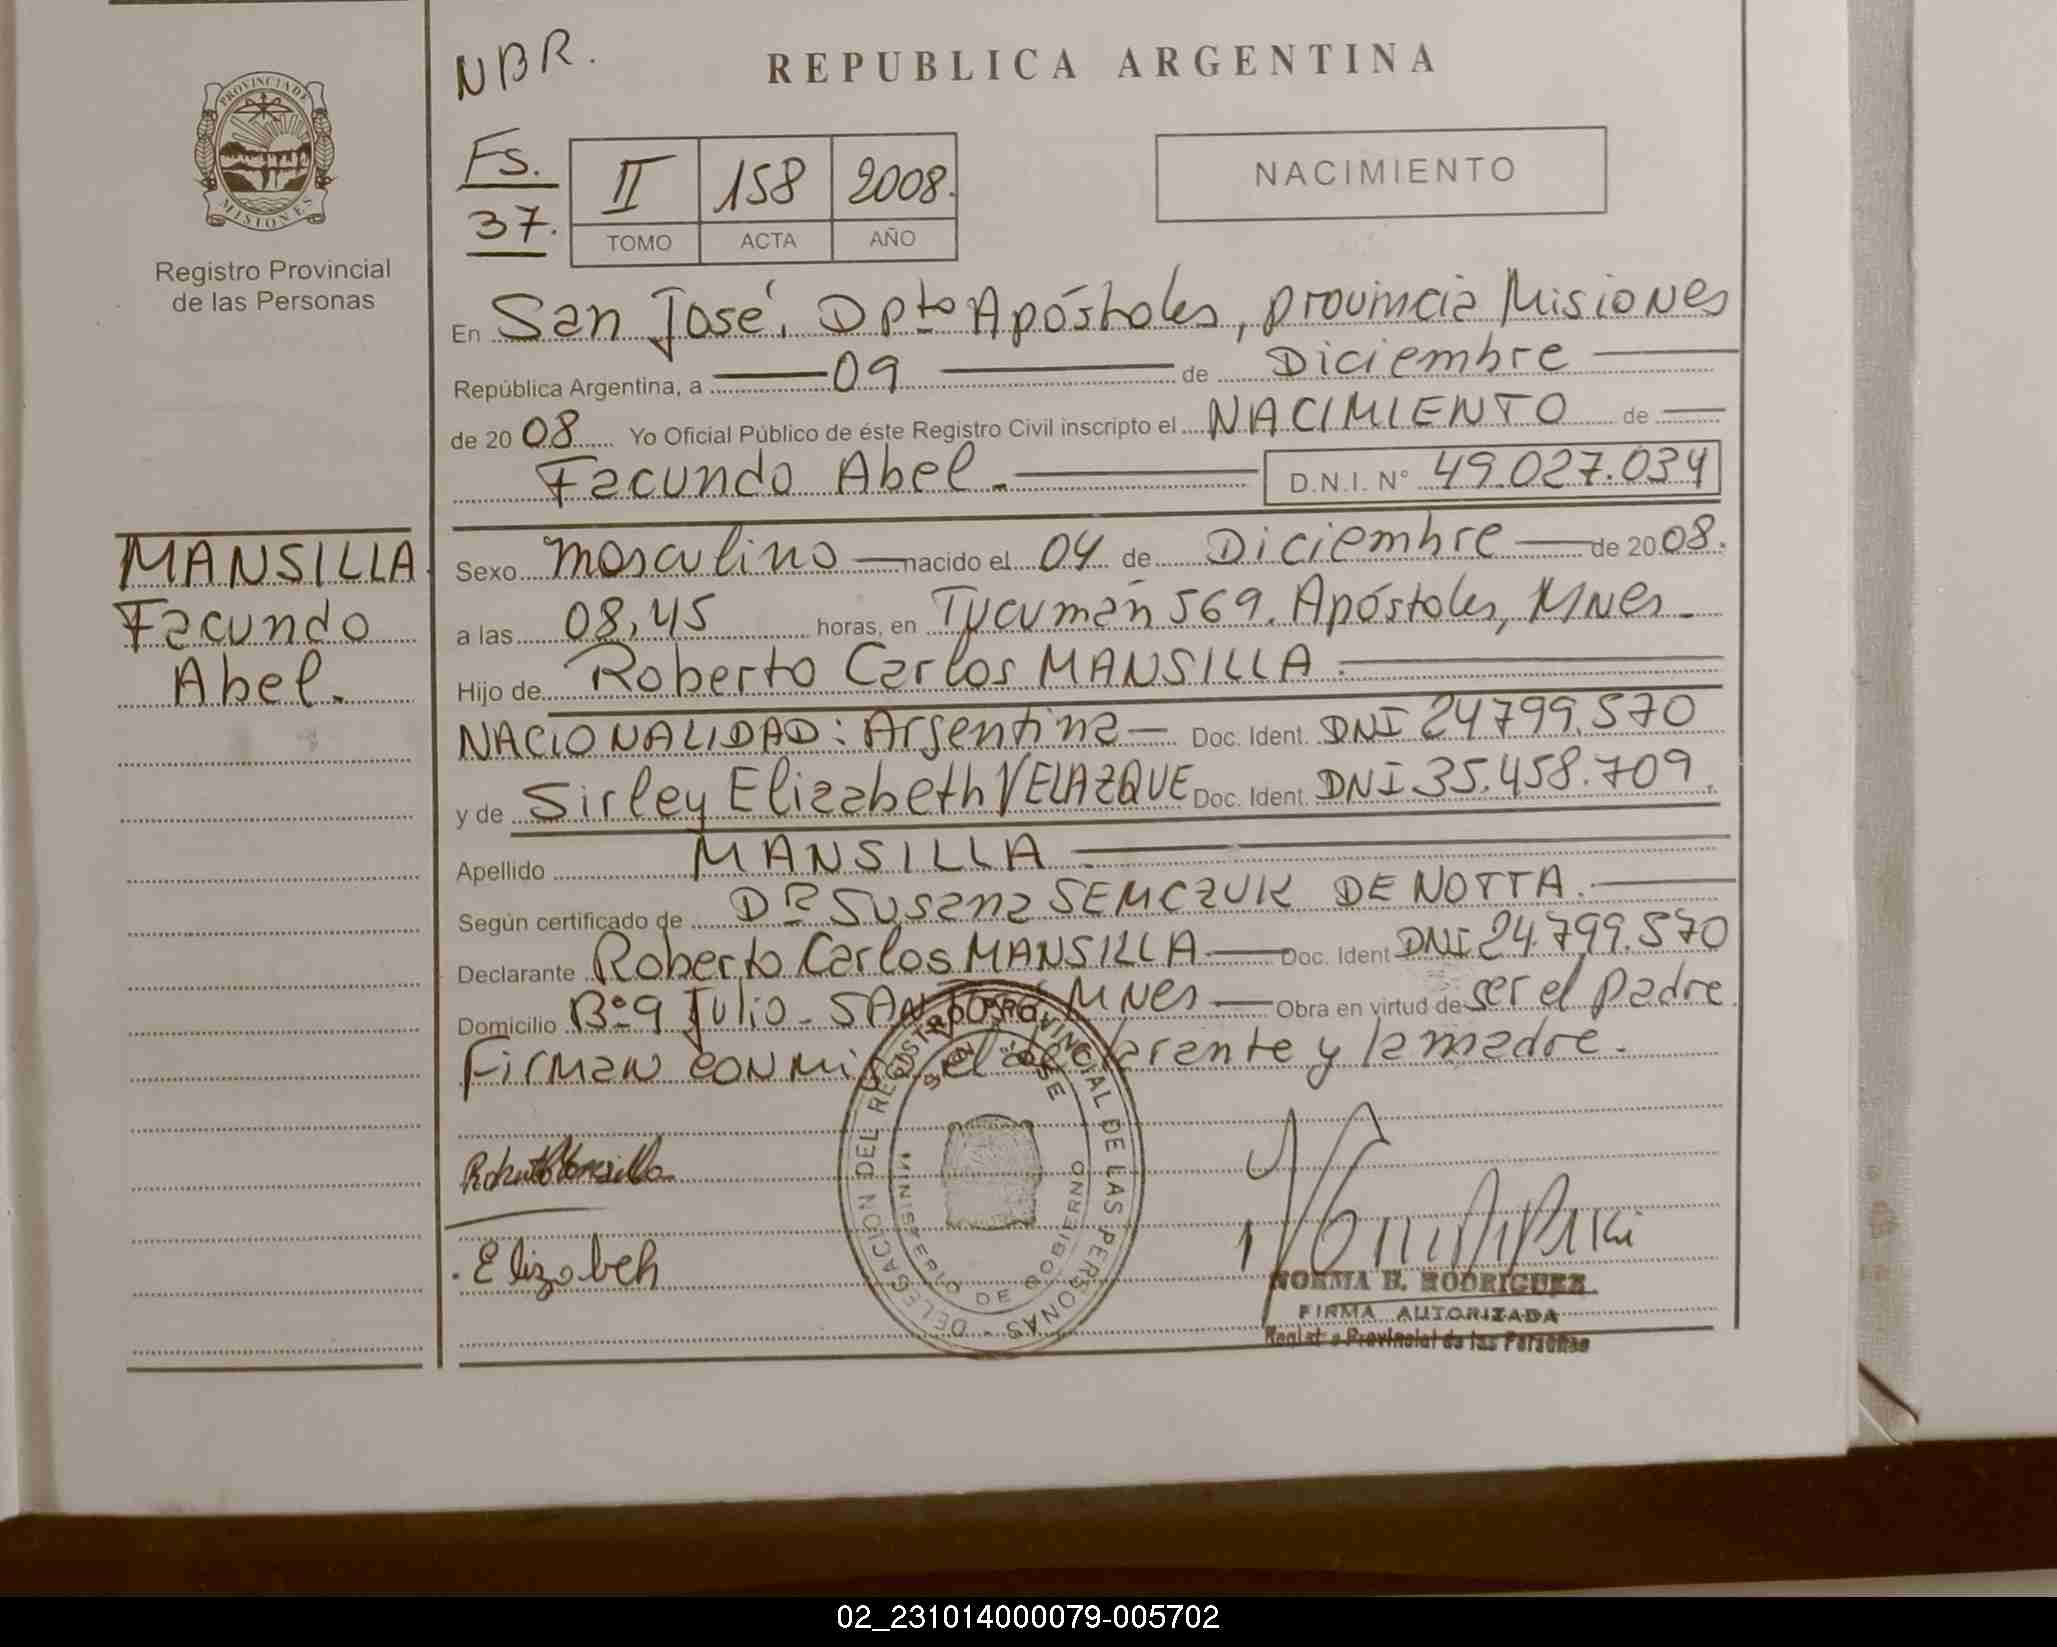 NBR.
REPUBLICA ARGENTINA
PROVINCIA DE
MISIONES
Registro Provincial
de las Personas
Fs.
37.
II 158 2008.
TOMO ACTA AÑO
NACIMIENTO
En San José, Dpto Apóstoles, provincia Misiones
República Argentina, a 09 de Diciembre
de 2008 Yo Oficial Público de éste Registro Civil inscripto el NACIMIENTO de
Facundo Abel. D.N.I. Nº 49.027.034
MANSILLA
Facundo
Abel.
Sexo masculino nacido el 04 de Diciembre de 2008.
a las 08,45 horas, en Tucumán 569. Apóstoles, Mnes.
Hijo de Roberto Carlos MANSILLA.
NACIONALIDAD: Argentina Doc. Ident. DNI 24799.570
y de Sirley Elizabeth VELAZQUE Doc. Ident. DNI 35.458.709
Apellido MANSILLA.
Según certificado de Dra Susana SEMCZUK DE NOTTA.
Declarante Roberto Carlos MANSILLA Doc. Ident DNI 24.799.570
Domicilio Bº 9 Julio - SAN José Mnes Obra en virtud de ser el padre.
Firman conmigo el declarante y la madre.
DELEGACION DEL REGISTRO PROVINCIAL DE LAS PERSONAS -
SAN JOSE
MINISTERIO DE GOBIERNO
Elizabeh
NORMA B. RODRIGUEZ
FIRMA AUTORIZADA
Registro Provincial de las Personas
02_231014000079-005702